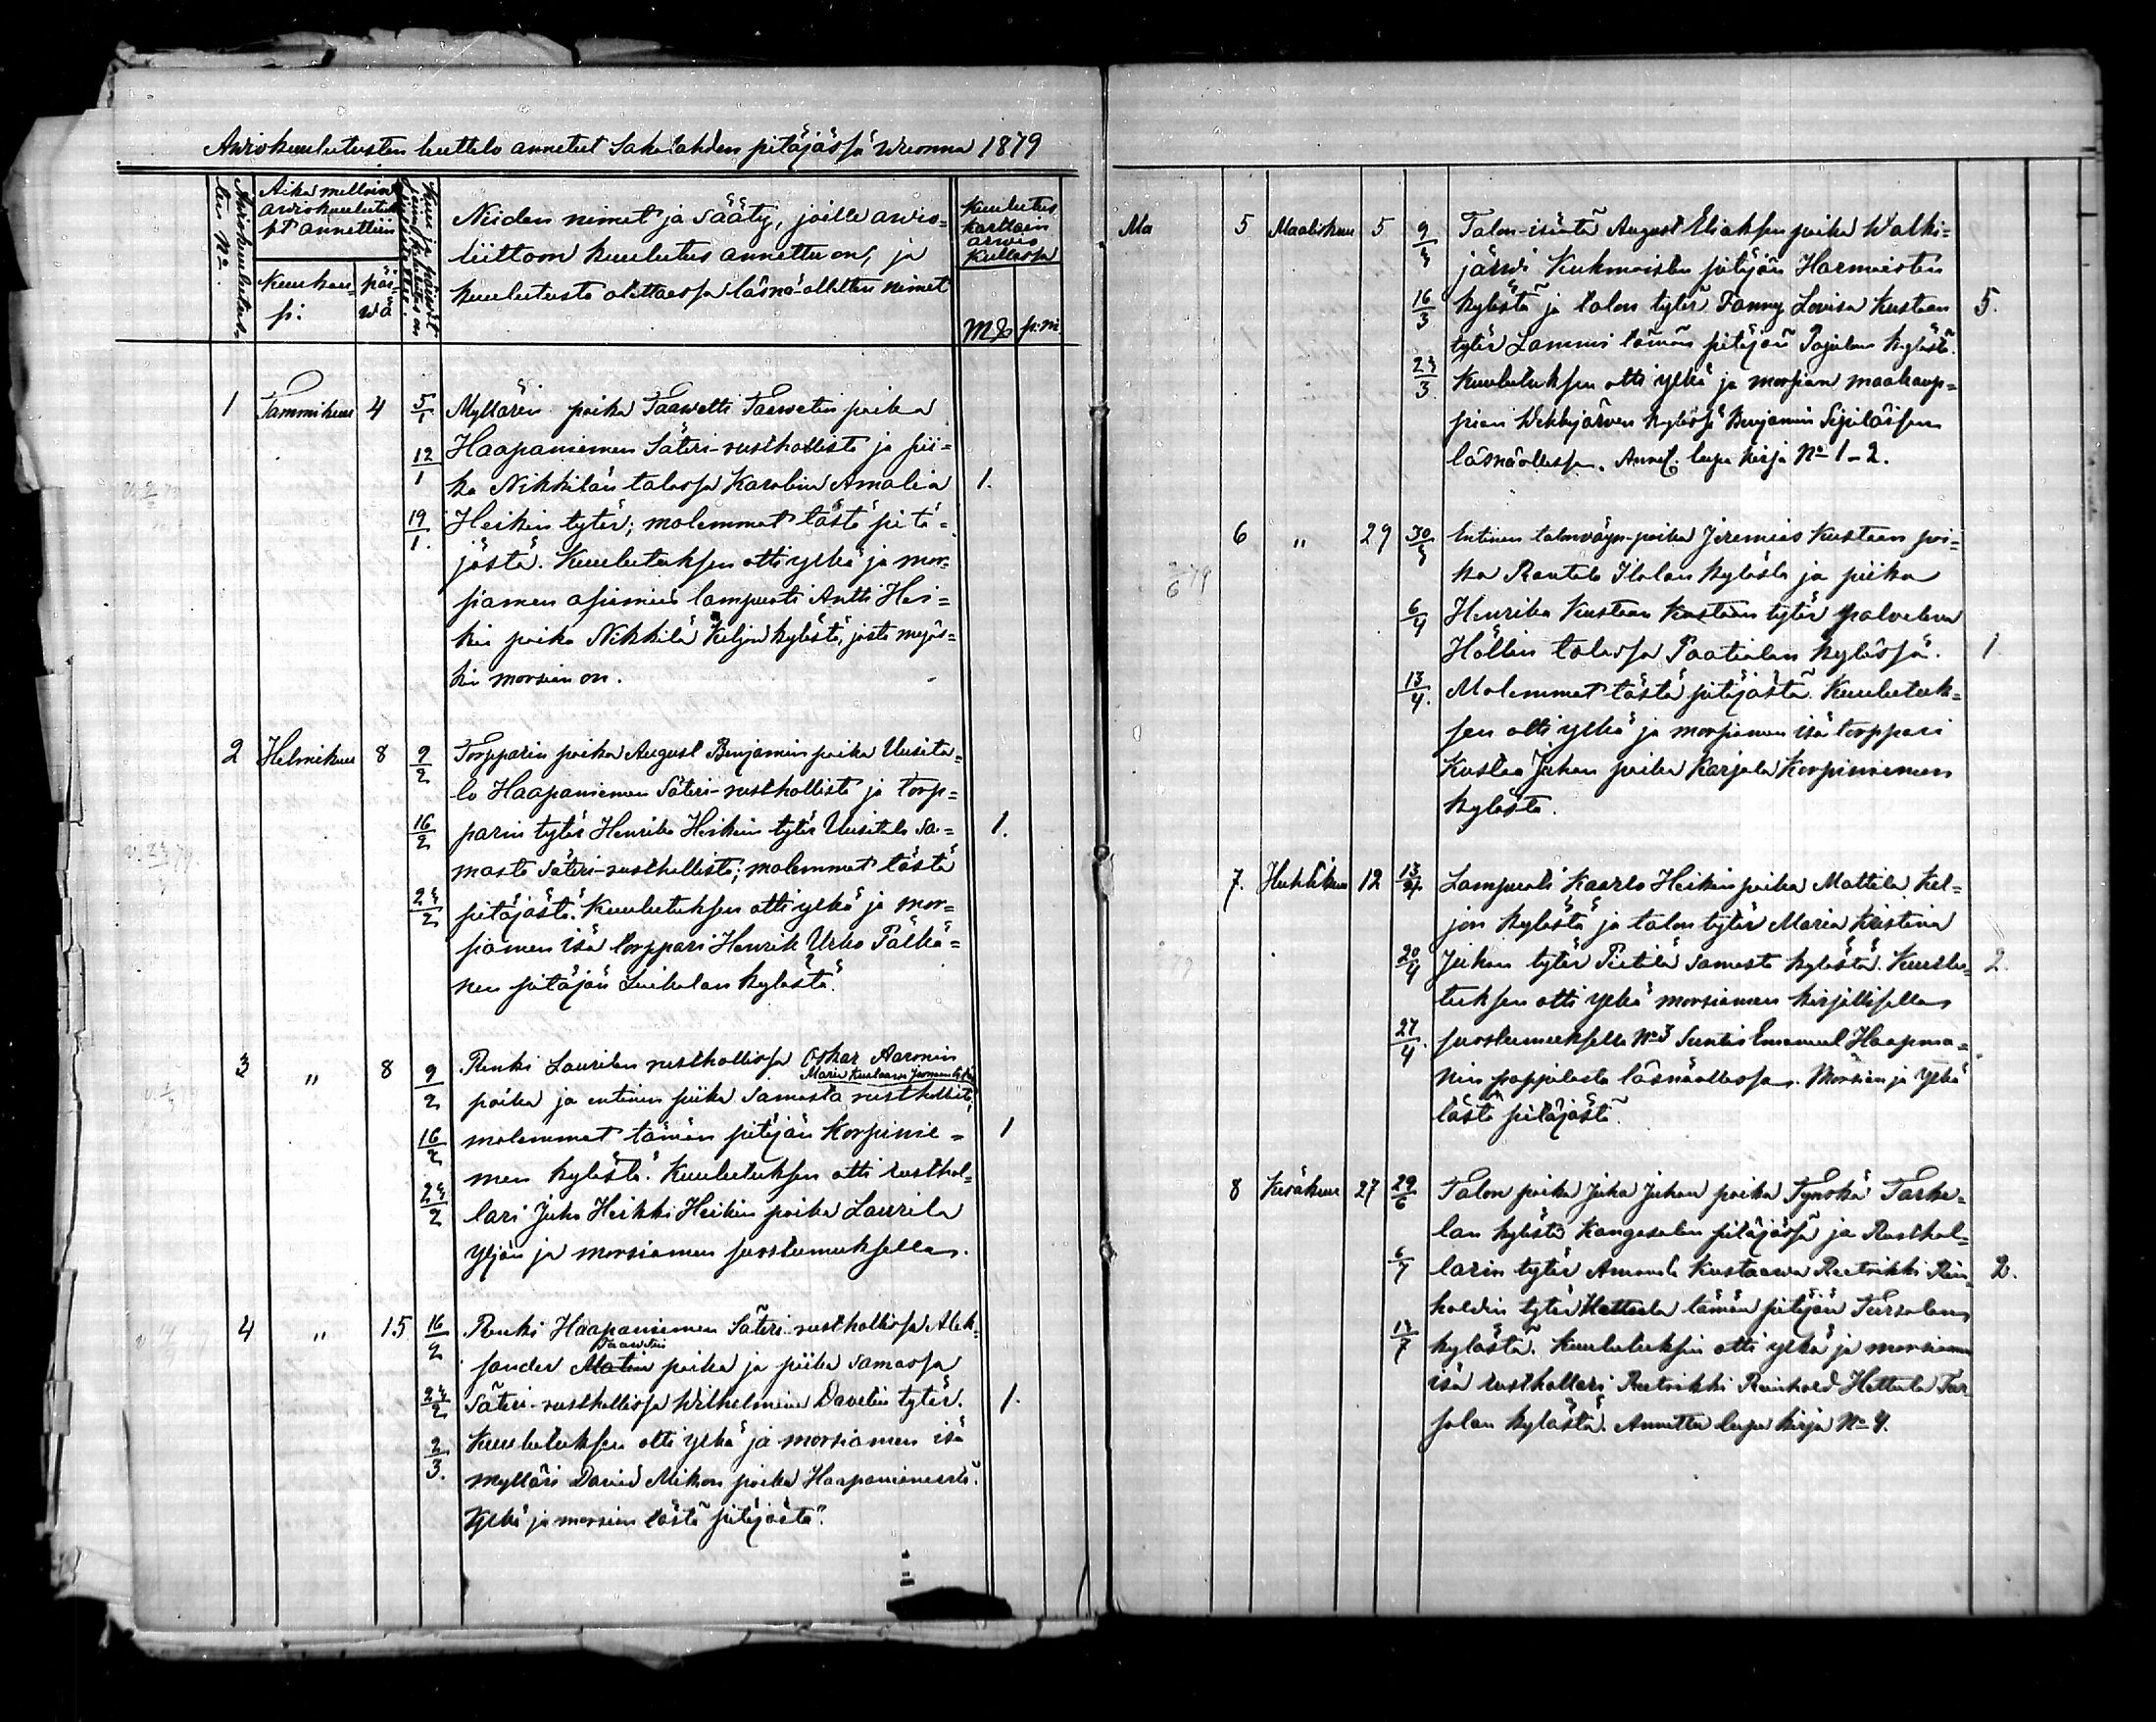 Awiokuulutusten luettelo annetut Sahalahden pitäjässä wuonna 1879
Awiokuulutus-
ten No.
Aika milloin
awiokuulutuk-
set annettiin
Kuukau-
si.
päi-
wä
Kuu ja päiwät
jona kuulutus on
Niiden nimet ja sääty, joille awio-
liittoon kuulutus annettu on, ja
kuulutusta otettaessa läsnä-olletten nimet
Kuulutus
karttain
arwo
kullassa
Mk p:ni
1 Tammikuu 4 5/1 Myllärin poika Taawetti Taawetin poika
12/1 Haapaniemen Säteri-rusthollista ja pii-
ka Nikkilän talossa Karolina Amalia 1.
19/1. Heikin tytär; molemmat tästä pitä-
jästä. Kuulutuksen otti ylkä ja mor-
siamen asiamies lampuoti Antti Hei-
kin poika Nikkilä Keljon kylästä, josta myös-
kin morsian on.
2 Helmikuu 8 9/2 Torpparin poika August Benjamin poika Uusita-
lo Haapaniemen Säteri-rusthollista ja torp-
16/2 parin tytär Henrika Heikin tytär Uusitalo sa- 1.
masta Säteri-rusthollista; molemmat tästä
23/2 pitäjästä. Kuulutuksen otti ylkä ja mor-
siamen isä torppari Henrik Urho Pälkä-
nen pitäjän Luikalan kylästä.
3 " 8 9/2 Renki Laurilan rusthollissa Oskar Aaronin
Maria Kustaawa
poika ja entinen piika samasta rusthollista,
16/2 molemmat tämän pitäjän Korpinie- 1
men kylästä. Kuulutuksen otti rusthol-
23/2 lari Juho Heikki Heikin poika Laurila
Yljän ja morsiamen suostumuksella.
4 " 15 16/2 Renki Haapaniemen Säteri-rusthollissa Alek-
Taawetin
sander Matin poika ja piika samassa
23/2 Säteri-rusthollissa Wilhelmina Davetin tytär. 1.
Kuulutuksen otti ylkä ja morsiamen isä
2/3. mylläri David Mikon poika Haapaniemestä.
Ylkä ja morsian tästä pitäjästä.
Ma 5 Maaliskuu 5 9/3 Talon-isäntä August Eliaksen poika Walki-
järwi Kuhmoisten pitäjän Harmoisten
16/3 kylästä ja talon tytär Fanny Lovisa Kustaan 5.
tytär Lammi tämän pitäjän Pajulan kylästä.
23/3. Kuulutuksen otti ylkä ja morsian maakaup-
pian Wehkjärven kylässä Benjamin Sipiläisen
läsnäollessa. Annet. lupa kirja No 1-2.
6 " 29 30/3 Entinen talonväyn-poika Jeremias Kustaan poi-
ka Rantala Ilolan kylästä ja piika
6/4 Henrika Kustaan Kustaan tytär palveleva
Hollin talossa Paatialan kylässä. 1.
13/4. Molemmat tästä pitäjästä. Kuulutuk-
sen otti ylkä ja morsiamen isä torppari
Kustaa Juhan poika Karjala Korpiniemen
kylästä.
7. Huhtikuu 12 13/4 Lampuoti Kaarlo Heikin poika Mattila Kel-
jon kylästä ja talon tytär Maria Kristina
20/4 Juhan tytär Pietilä samasta kylästä. Kuulu- 2.
tuksen otti ylkä morsiamen kirjallisella
27/4. suostumuksella No 3 Suntio Emanuel Haapma-
nin pappilasta läsnäollessa. Morsian ja Ylkä
tästä pitäjästä.
8 Kesäkuu 27 29/6 Talon poika Juha Juhan poika Tynskä Tarke-
lan kylästä Kangasalan pitäjässä ja Rusthol-
6/7 larin tytär Amanda Kustaawa Reetrikki Rein- 2.
holdin tytär Hettula tämän pitäjän Tursolan
13/7 kylästä. Kuulutuksen otti ylkä ja morsiamen
isä rusthollari Reetrikki Reinhold Hettula Tur-
solan kylästä. Annettu lupa kirja No 4.